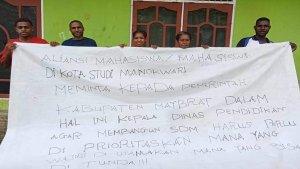 ALIANSI MAHASISWA / MAHASISWI
DI KOTA STUDI MANOKWARI
MEMINTA KEPADA PEMERINTAH
KABUPATEN MAYBRAT DALAM
HAL INI KEPALA DINAS PENDIDIKAN
AGAR MEMBANGUN SDM HARUS PERLU
DI PRIORITASKAN MANA YANG
WAJIB DI UTAMAKAN MANA YANG BISA
DI TUNDA!!!